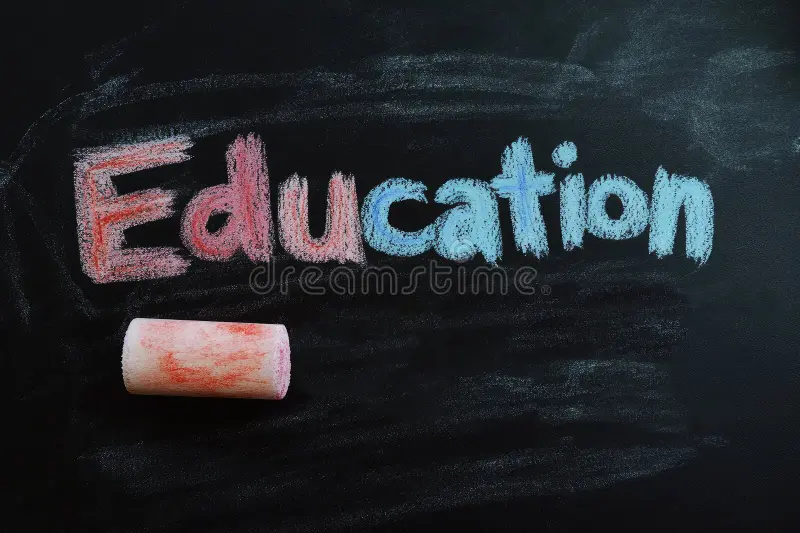 Education
dreamstime